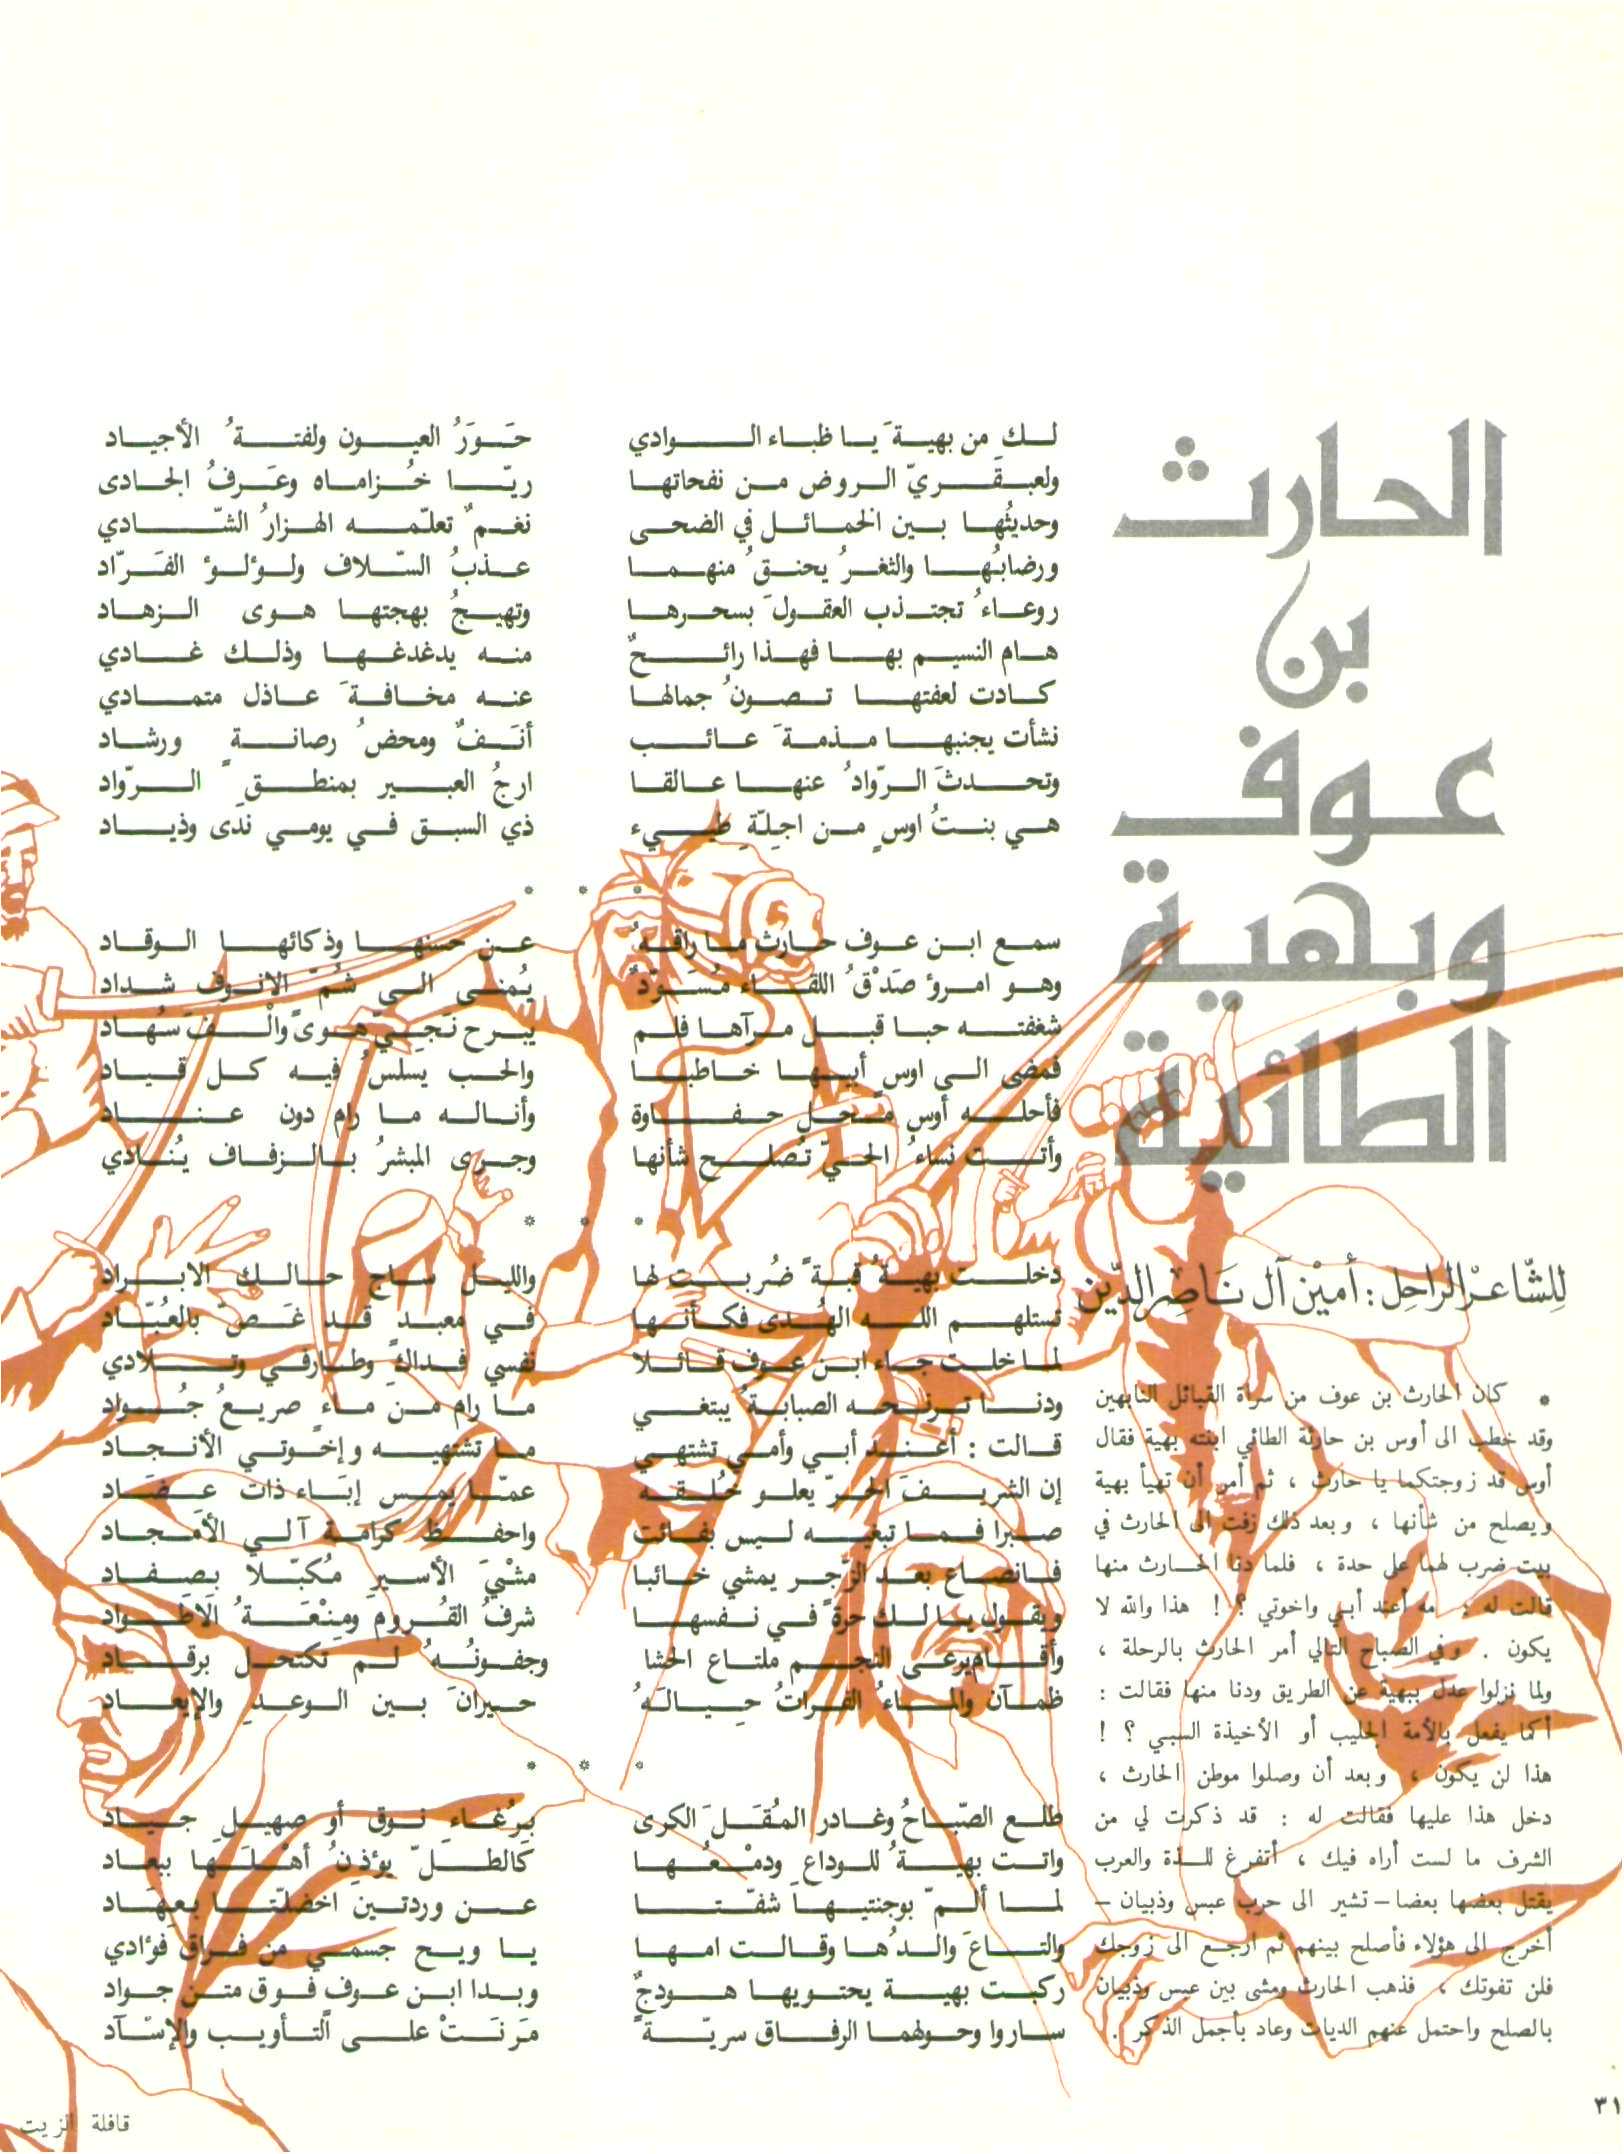 الحارث
بن
عوف
وبهية
الطائية
للشاعر الراحل : أمين آل ناصر الدين
* كان الحارث بن عوف من سراة القبائل النابهين
وقد خطب الى أوس بن حارثة الطائي ابنته بهية فقال
أوس قد زوجتكما يا حارث ، ثم أمر أن تهيأ بهية
ويصلح من شأنها ، وبعد ذلك زفت الى الحارث في
بيت ضرب لهما على حدة ، فلما دنا الحارث منها
قالت له : مه أعند أبي واخوتي ؟ ! هذا والله لا
يكون . وفي الصباح التالي أمر الحارث بالرحلة ،
ولما نزلوا عدل ببهية عن الطريق ودنا منها فقالت :
أكما يفعل بالأمة الجليب أو الأخيذة السبي ؟ !
هذا لن يكون ، وبعد أن وصلوا موطن الحارث ،
دخل هذا عليها فقالت له : قد ذكرت لي من
الشرف ما لست أراه فيك ، أتفرغ للذة والعرب
يقتل بعضها بعضا – تشير الى حرب عبس وذبيان –
أخرج الى هؤلاء فأصلح بينهم ثم ارجع الى زوجك
فلن تفوتك ، فذهب الحارث ومشى بين عبس وذبيان
بالصلح واحتمل عنهم الديات وعاد بأجمل الذكر .
لك من بهيةَ يا ظباء الوادي حَوَرُ العيون ولفتةُ الأجياد
ولعبقَريّ الروض من نفحاتها ريّا خُزاماه وعَرفُ الجادى
وحديثُها بين الخمائل في الضحى نغمٌ تعلّمه الهزارُ الشّادي
ورضابُها والثغرُ يحنقُ منهما عذبُ السّلاف ولؤلؤ الفَرّاد
روعاءُ تجتذب العقولَ بسحرها وتهيجُ بهجتها هوى الزهاد
هام النسيم بها فهذا رائحٌ منه يدغدغها وذلك غادي
كادت لعفتها تصونُ جمالها عنه مخافةَ عاذل متمادي
نشأت يجنبها مذمةَ عائب أنَفٌ ومحضُ رصانةٍ ورشاد
وتحدثَ الرّوادُ عنها عالقا ارجُ العبير بمنطقِ الرّواد
هي بنتُ اوسٍ من اجِلّةِ طيء ذي السبق في يومي نَدى وذياد
* * *
سمع ابن عوف حارث ما راقهُ عن حسنها وذكائها الوقاد
وهو امرؤ صَدْقُ اللقاء مُسَوّدٌ يُمنى الى شُمّ الانوف شداد
شغفته حبا قبل مرآها فلم يبرح نَجِيّ هوىً والْفَ سُهاد
فمضى الى اوسٍ أبيها خاطبا والحب يَسلسُ فيه كل قياد
فأحله أوس مَحل حفاوة وأناله ما رام دون عناد
وأتت نساءُ الحيّ تُصلح شأنها وجرى المبشرُ بالزفاف يُنادي
* * *
دخلت بهيةُ قبةً ضُربت لها والليل ساج حالك الابراد
تستلهم الله الهُدى فكأنها في معبد قد غَصّ بالعُبّاد
لما خلت جاء ابن عوف قائلا نفسي فداكِ وطارفي وتلادي
ودنا ترنحه الصبابةُ يبتغي ما رام من ماء صريعُ جُواد
قالت : أعند أبي وأمي تشتهي ما تشتهيه وإخوتي الأنجاد
إن الشريفَ الحرّ يعلو خُلقه عمّا يمس إبَاء ذات عضَاد
صبرا فما تبغيه ليس بفائت واحفظ كرامة آلي الأمجاد
فانصاع بعد الزّجر يمشي خائبا مشْيَ الأسيرِ مُكبّلا بصِفاد
ويقول يا لك حرةً في نفسها شرفُ القُروم ومِنْعَةُ الاطواد
وأقام يرعى النجم ملتاع الحشا وجفونُهُ لم تكتحل برقاد
ظمآن والماءُ الفراتُ حِيالَهُ حيرانَ بين الوعدِ والإيعاد
* * *
طلع الصّباحُ وغادر المُقَلَ الكرى برُغاء نوق أو صهيلِ جياد
واتت بهيةُ للوداع ودمْعُها كالطلّ يؤذِنُ أهْلَها ببعاد
لما ألمّ بوجنتيها شفّتا عن وردتين اخضلّتا بعِهَاد
والتاعَ والدُها وقالت امها يا ويح جسمي من فراق فؤادي
ركبت بهية يحتويها هودجٌ وبدا ابن عوف فوق متن جواد
ساروا وحولهما الرفاق سريّةً مَرَنَتْ على التأويب والإسآد
٣١
قافلة الزيت